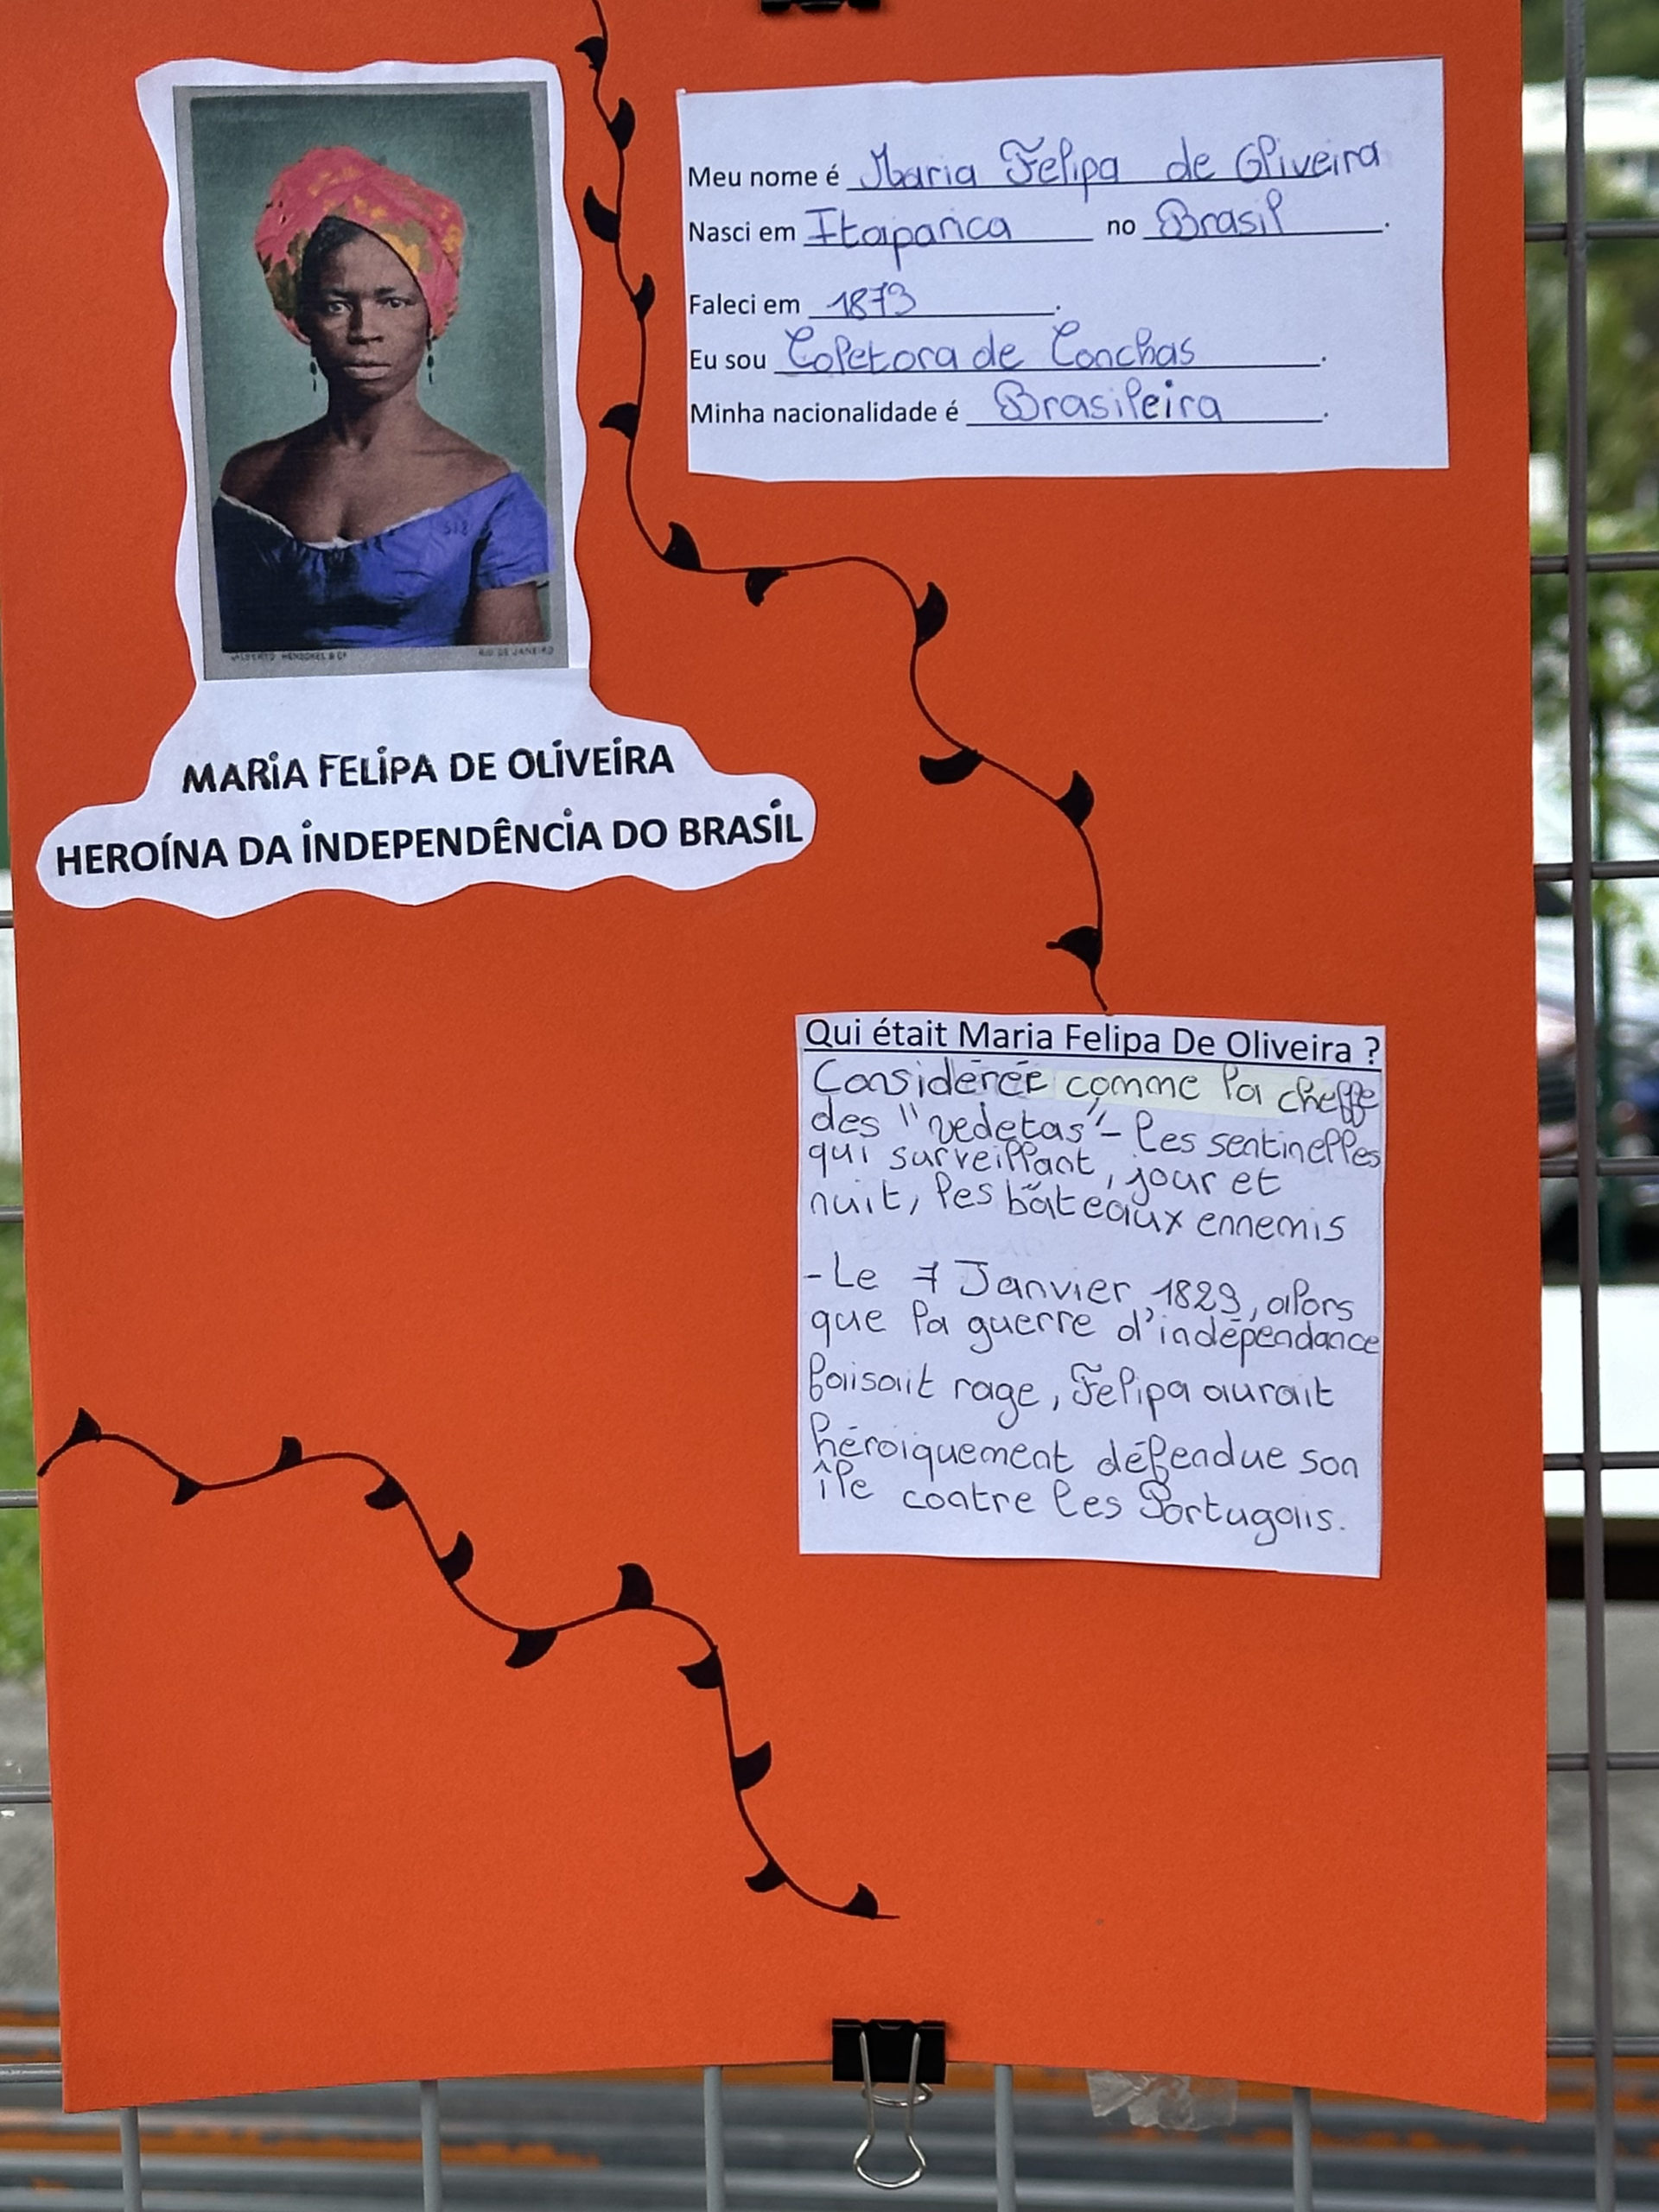 ALBERTO HENSCHEL & Cº
RIO DE JANEIRO
MARIA FELIPA DE OLIVEIRA
HEROÍNA DA INDEPENDÊNCIA DO BRASIL
Meu nome é Maria Felipa de Oliveira
Nasci em Itaparica no Brasil.
Faleci em 1873.
Eu sou Coletora de Conchas.
Minha nacionalidade é Brasileira.
Qui était Maria Felipa De Oliveira ?
Considérée comme la cheffe
des "vedetas" - les sentinelles
qui surveillant, jour et
nuit, les bâteaux ennemis
- Le 7 Janvier 1823, alors
que la guerre d'indépendance
faisait rage, Felipa aurait
héroïquement défendue son
île contre les Portugais.